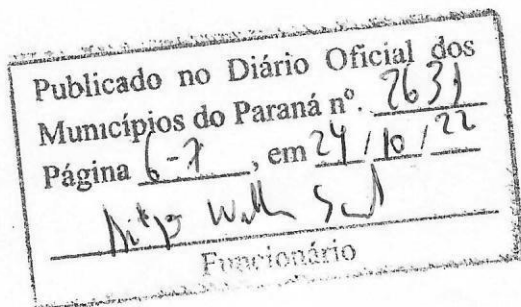 Publicado no Diário Oficial dos
Municípios do Paraná nº. 2631
Página 6-7, em 24/10/22
Funcionário